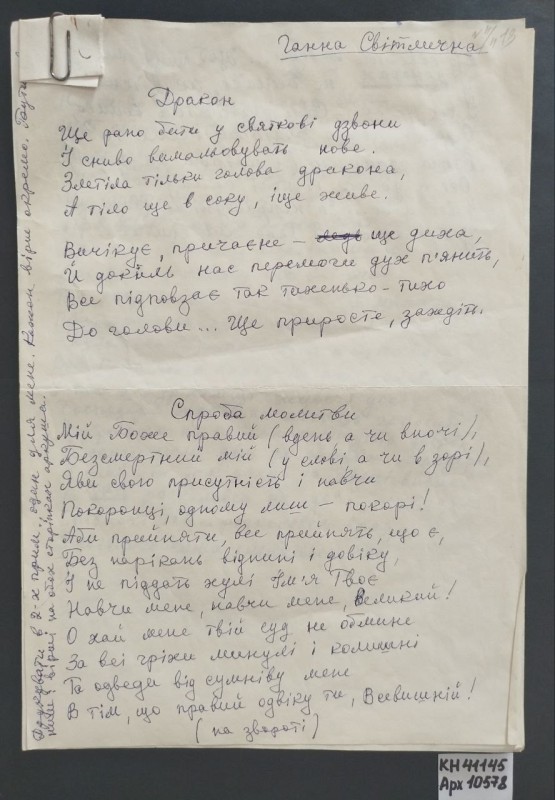 Ганна Світлична
13
Дракон
Ще рано бити у святкові дзвони
Й сниво вимальовувать нове.
Злетіла тільки голова дракона,
А тіло ще в соку, іще живе.
Вичікує, причаєне – ледь ще диха,
Й докіль нас перемоги дух п'янить,
Все підповзає так тихенько-тихо
До голови... Ще приросте, заждіть.
Спроба молитви
Мій Боже правий (вдень а чи вночі),
Безсмертний мій (у слові, а чи в зорі),
Яви свого присутність і навчи
Покоронці, одному лиш – покорі!
Аби прийняти, все прийнять, що є,
Без нарікань віднині і довіку,
І не піддать хулі Ім'я Твоє
Навчи мене, навчи мене, Великий!
О хай мене твій суд не обмине
За всі гріхи минулі і колишні
Та одведи від сумніву мене
В тім, що правий одвіку ти, Всевишній!
(на звороті)
Друкувати в 2-х прим., один для мене. Кожен вірш окремо.
вірші на обох сторінках аркуша.
КН 41145
Арх 10578